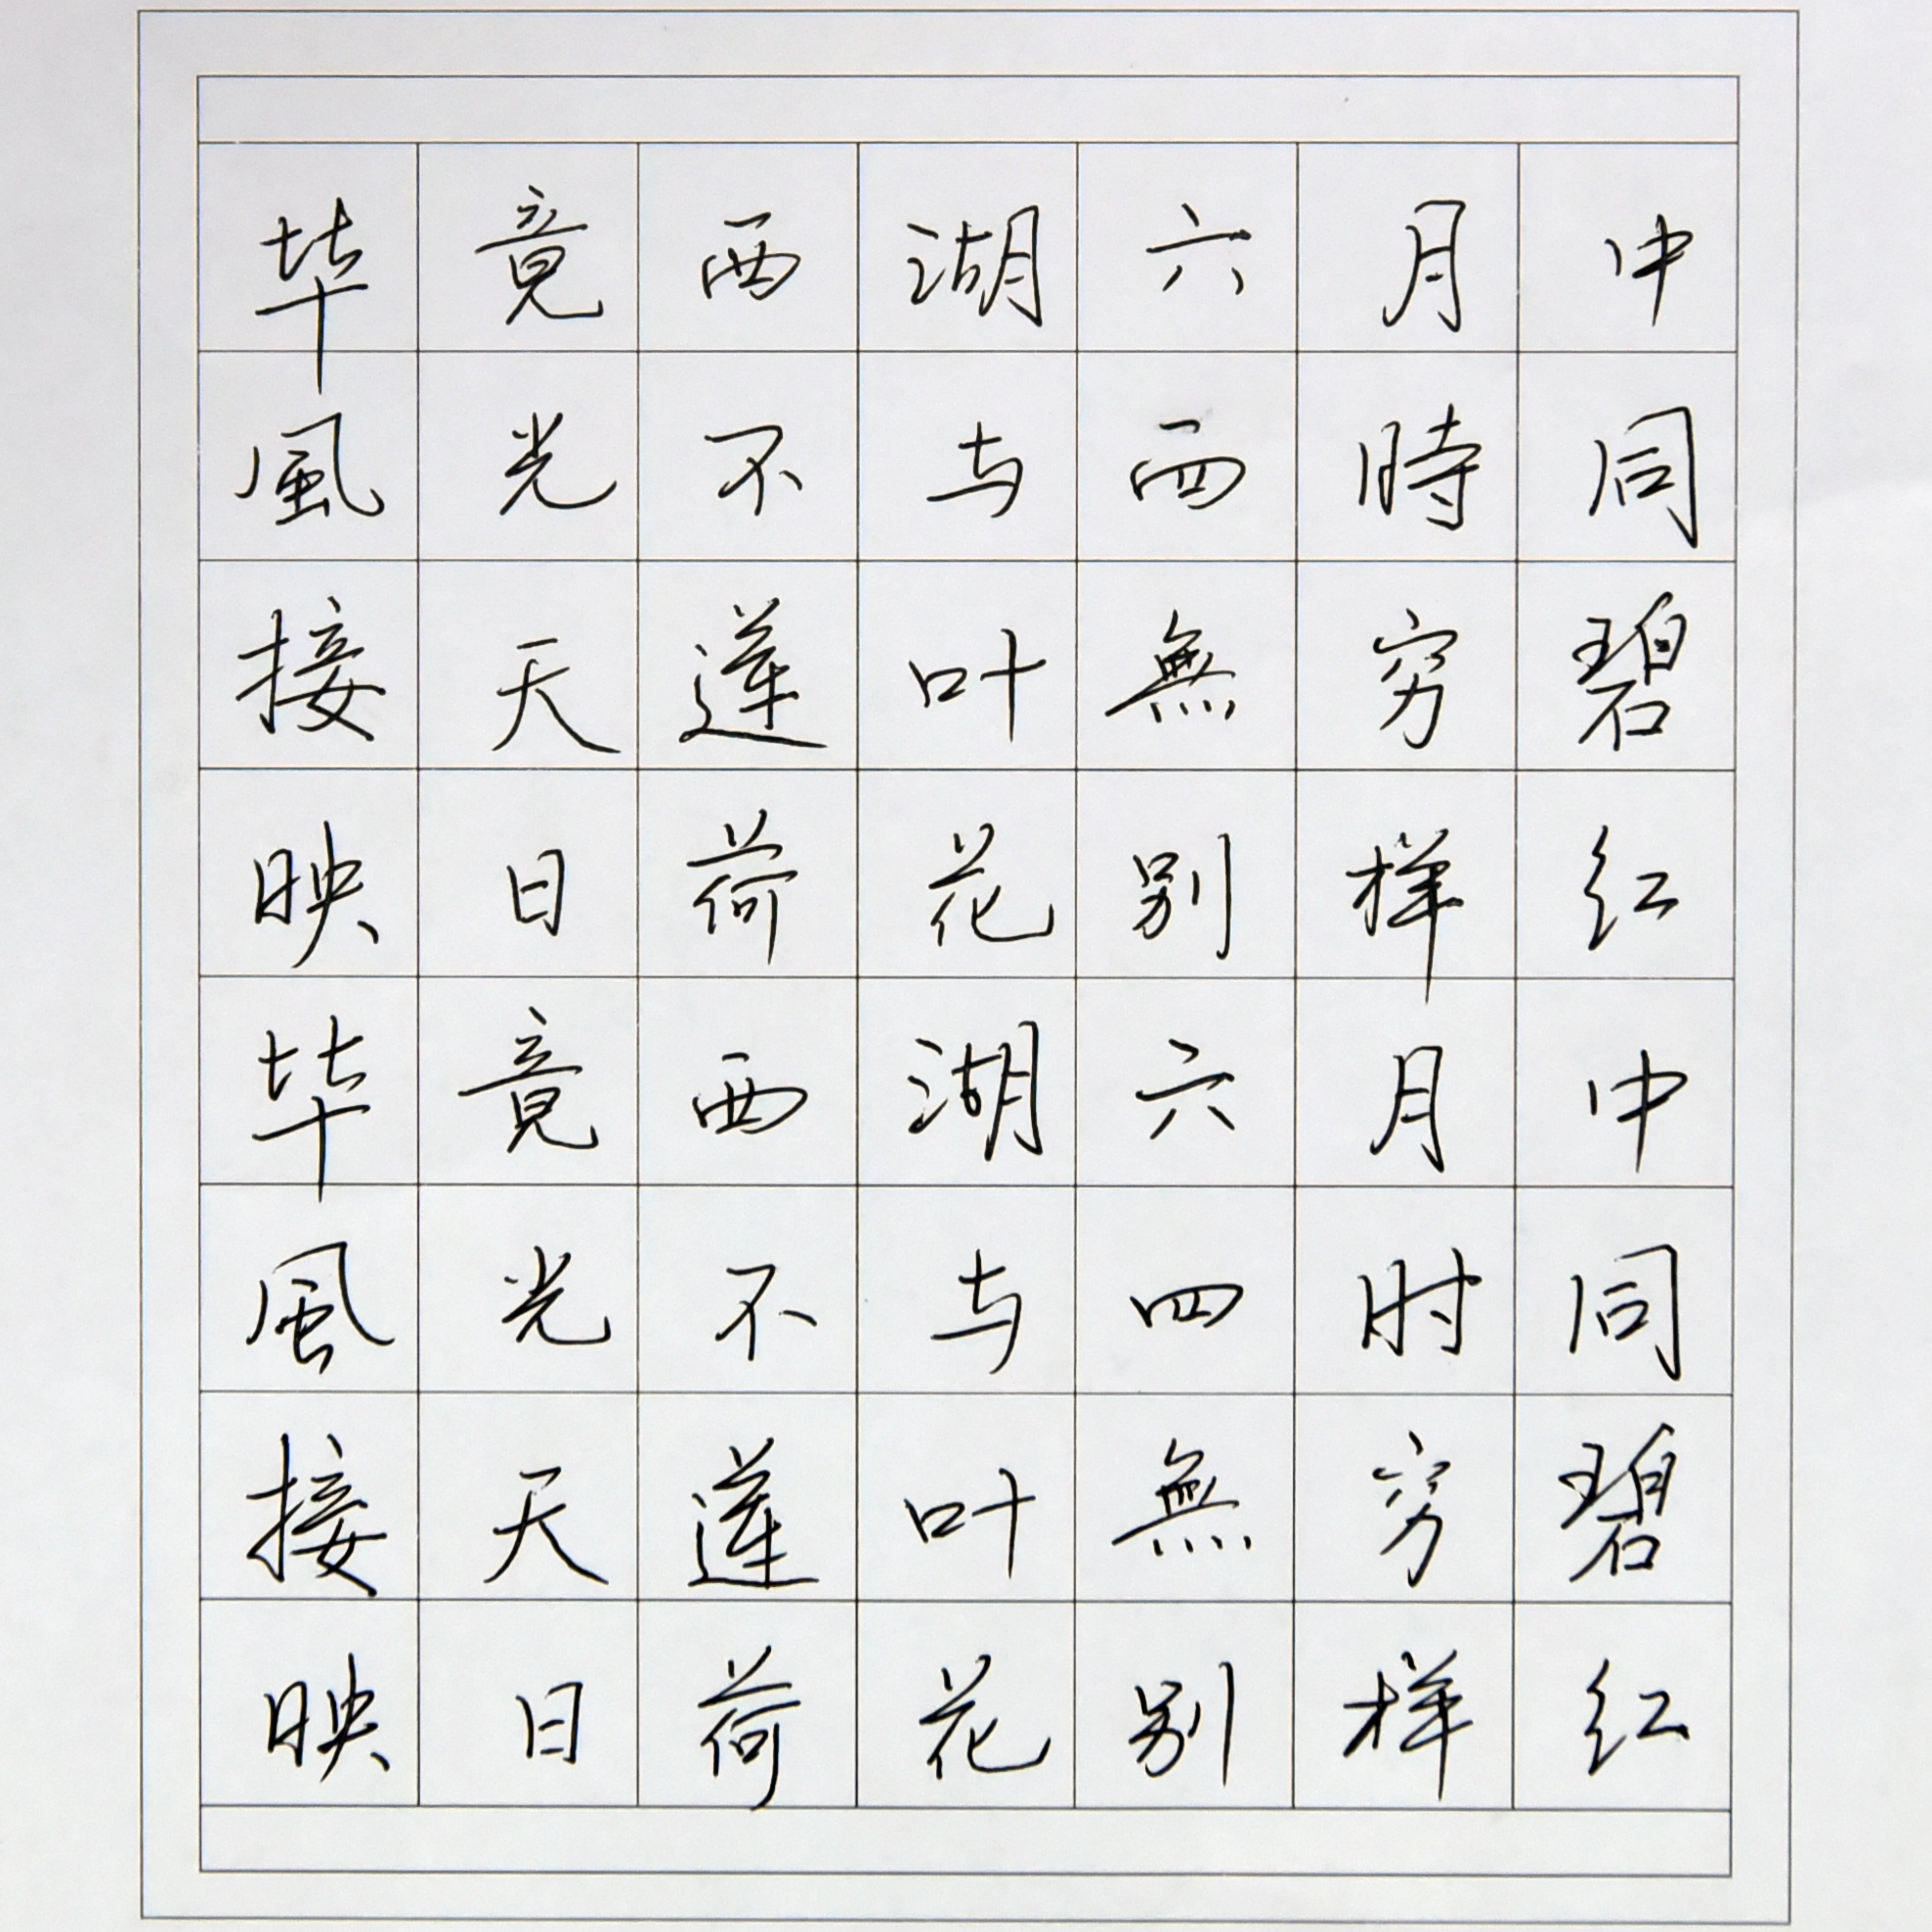 毕竟西湖六月中
風光不与四時同
接天莲叶無穷碧
映日荷花别样红
毕竟西湖六月中
風光不与四时同
接天莲叶無穷碧
映日荷花别样红